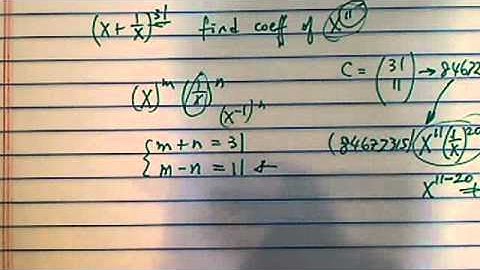 (x + 1/x)^31 find coeff of x^11
C = (31 11) → 84672
(x)^m (1/x)^n
(x^-1)^n
{ m + n = 31
m - n = 11
(84672315) x^11 (1/x)^20
x^11-20 ≠